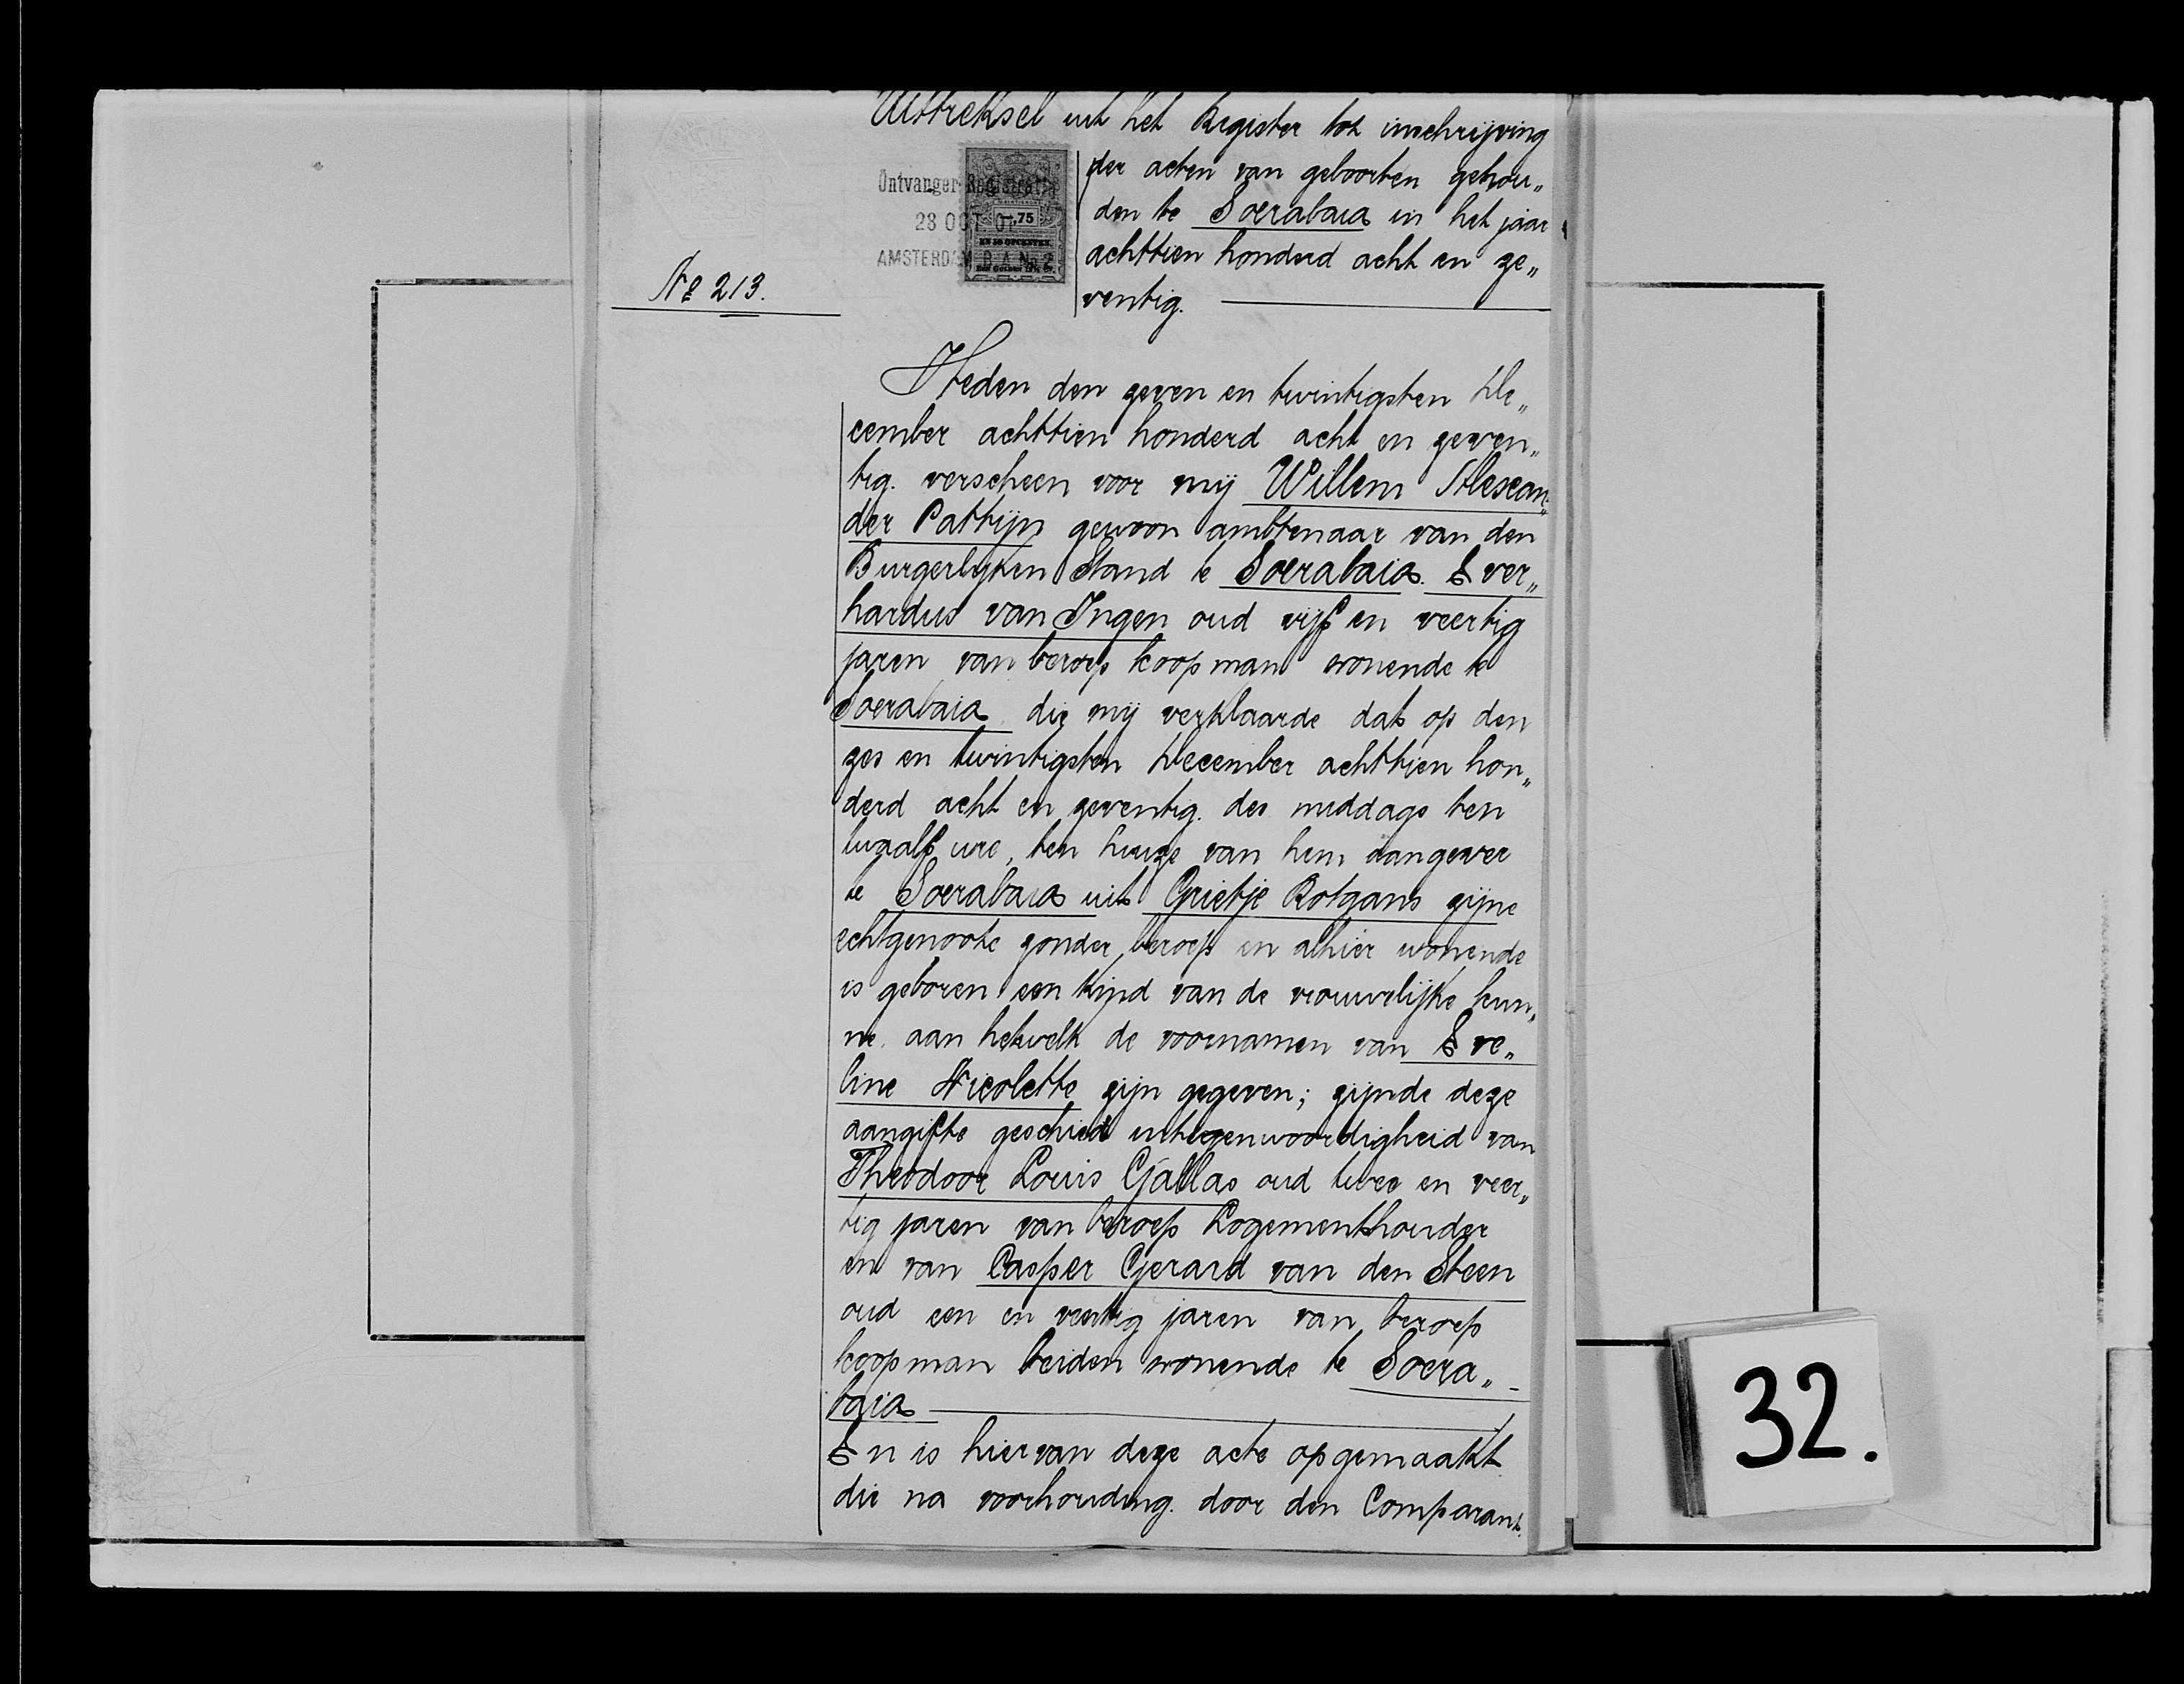 Uittreksel uit het Register tot inschrijving
der acten van geboorten gehou„
den te Soerabaia in het jaar
achttien honderd acht en ze„
ventig.
Ontvanger Registratie
28 OCT 07
AMSTERDAM B.A. No 2
75
EN 38 OPCENTEN
No 213.
Heden den zeven en twintigsten De„
cember achttien honderd acht en zeven„
tig. verscheen voor mij Willem Alexan„
der Pattijn gewoon ambtenaar van den
Burgerlijken Stand te Soerabaia. Ever„
hardus van Ingen oud vijf en veertig
jaren van beroep koopman wonende te
Soerabaia die mij verklaarde dat op den
zes en twintigsten December achttien hon„
derd acht en zeventig. des middags ten
twaalf ure, ten huize van hem aangever
te Soerabaia uit Grietje Rotgans zijne
echtgenoote zonder beroep en alhier wonende
is geboren een kind van de vrouwelijke kun„
ne. aan hetwelk de voornamen van Eve„
line Nicolette zijn gegeven; zijnde deze
aangifte geschied in tegenwoordigheid van
Theodoor Louis Gallas oud twee en veer„
tig jaren van beroep Logementhouder
en van Casper Gerard van den Steen
oud een en veertig jaren van beroep
koopman beiden wonende te Soera„
baia
En is hiervan deze acte opgemaakt
die na voorhouding. door den Comparant.
32.